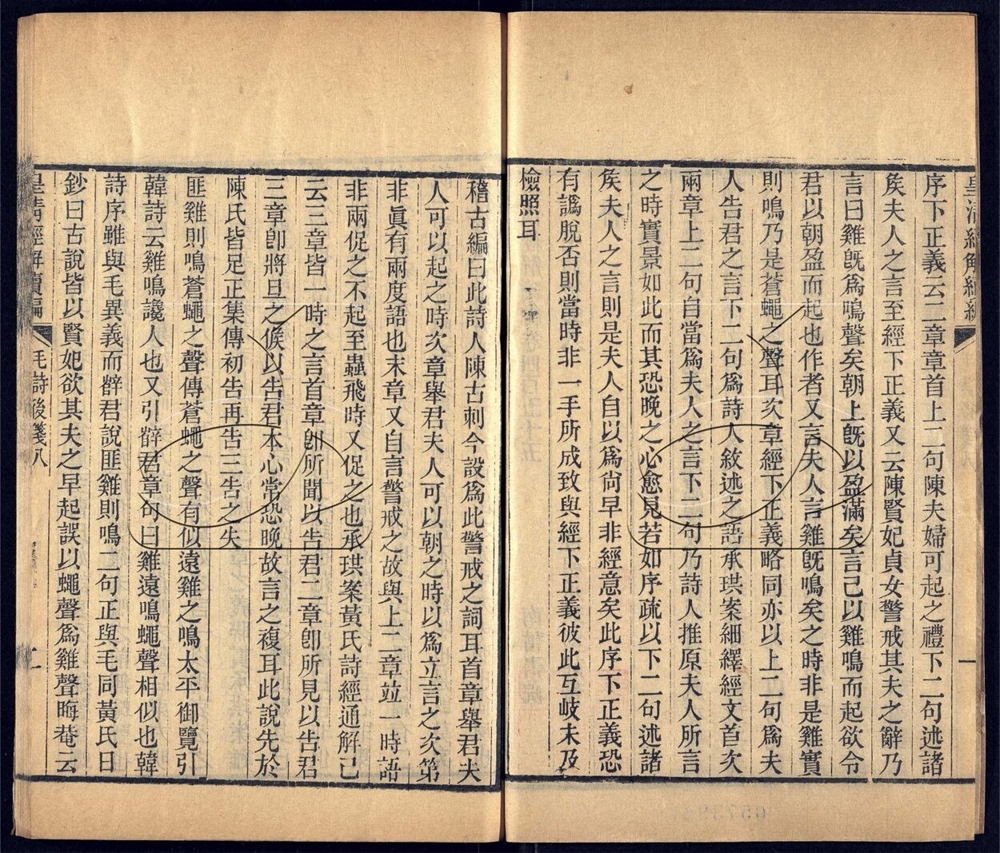 皇清經解續編
一
序下正義云二章章首上二句陳夫婦可起之禮下二句述諸
矦夫人之言至經下正義又云陳賢妃貞女警戒其夫之辭乃
言曰雞旣爲鳴聲矣朝上旣以盈滿矣言己以雞鳴而起欲令
君以朝盈而起也作者又言夫人言雞旣鳴矣之時非是雞實
則鳴乃是蒼蠅之聲耳次章經下正義略同亦以上二句爲夫
人告君之言下二句爲詩人敘述之語承珙案細繹經文首次
兩章上二句自當爲夫人之言下二句乃詩人推原夫人所言
之時實景如此而其恐晚之心愈見若如序疏以下二句述諸
矦夫人之言則是夫人自以爲尙早非經意矣此序下正義恐
有譌脫否則當時非一手所成致與經下正義彼此互岐未及
檢照耳
稽古編曰此詩人陳古刺今設爲此警戒之詞耳首章舉君夫
人可以起之時次章舉君夫人可以朝之時以爲立言之次第
非眞有兩度語也末章又自言警戒之故與上二章竝一時語
非兩促之不起至蟲飛時又促之也承珙案黃氏詩經通解已
云三章皆一時之言首章卽所聞以告君二章卽所見以告君
三章卽將旦之候以告君本心常恐晚故言之複耳此說先於
陳氏皆足正集傳初告再告三告之失
匪雞則鳴蒼蠅之聲傳蒼蠅之聲有似遠雞之鳴太平御覽引
韓詩云雞鳴讒人也又引薛君章句曰雞遠鳴蠅聲相似也韓
詩序雖與毛異義而薛君說匪雞則鳴二句正與毛同黃氏日
鈔曰古說皆以賢妃欲其夫之早起誤以蠅聲爲雞聲晦菴云
皇淸經解續編
毛詩後箋八
二